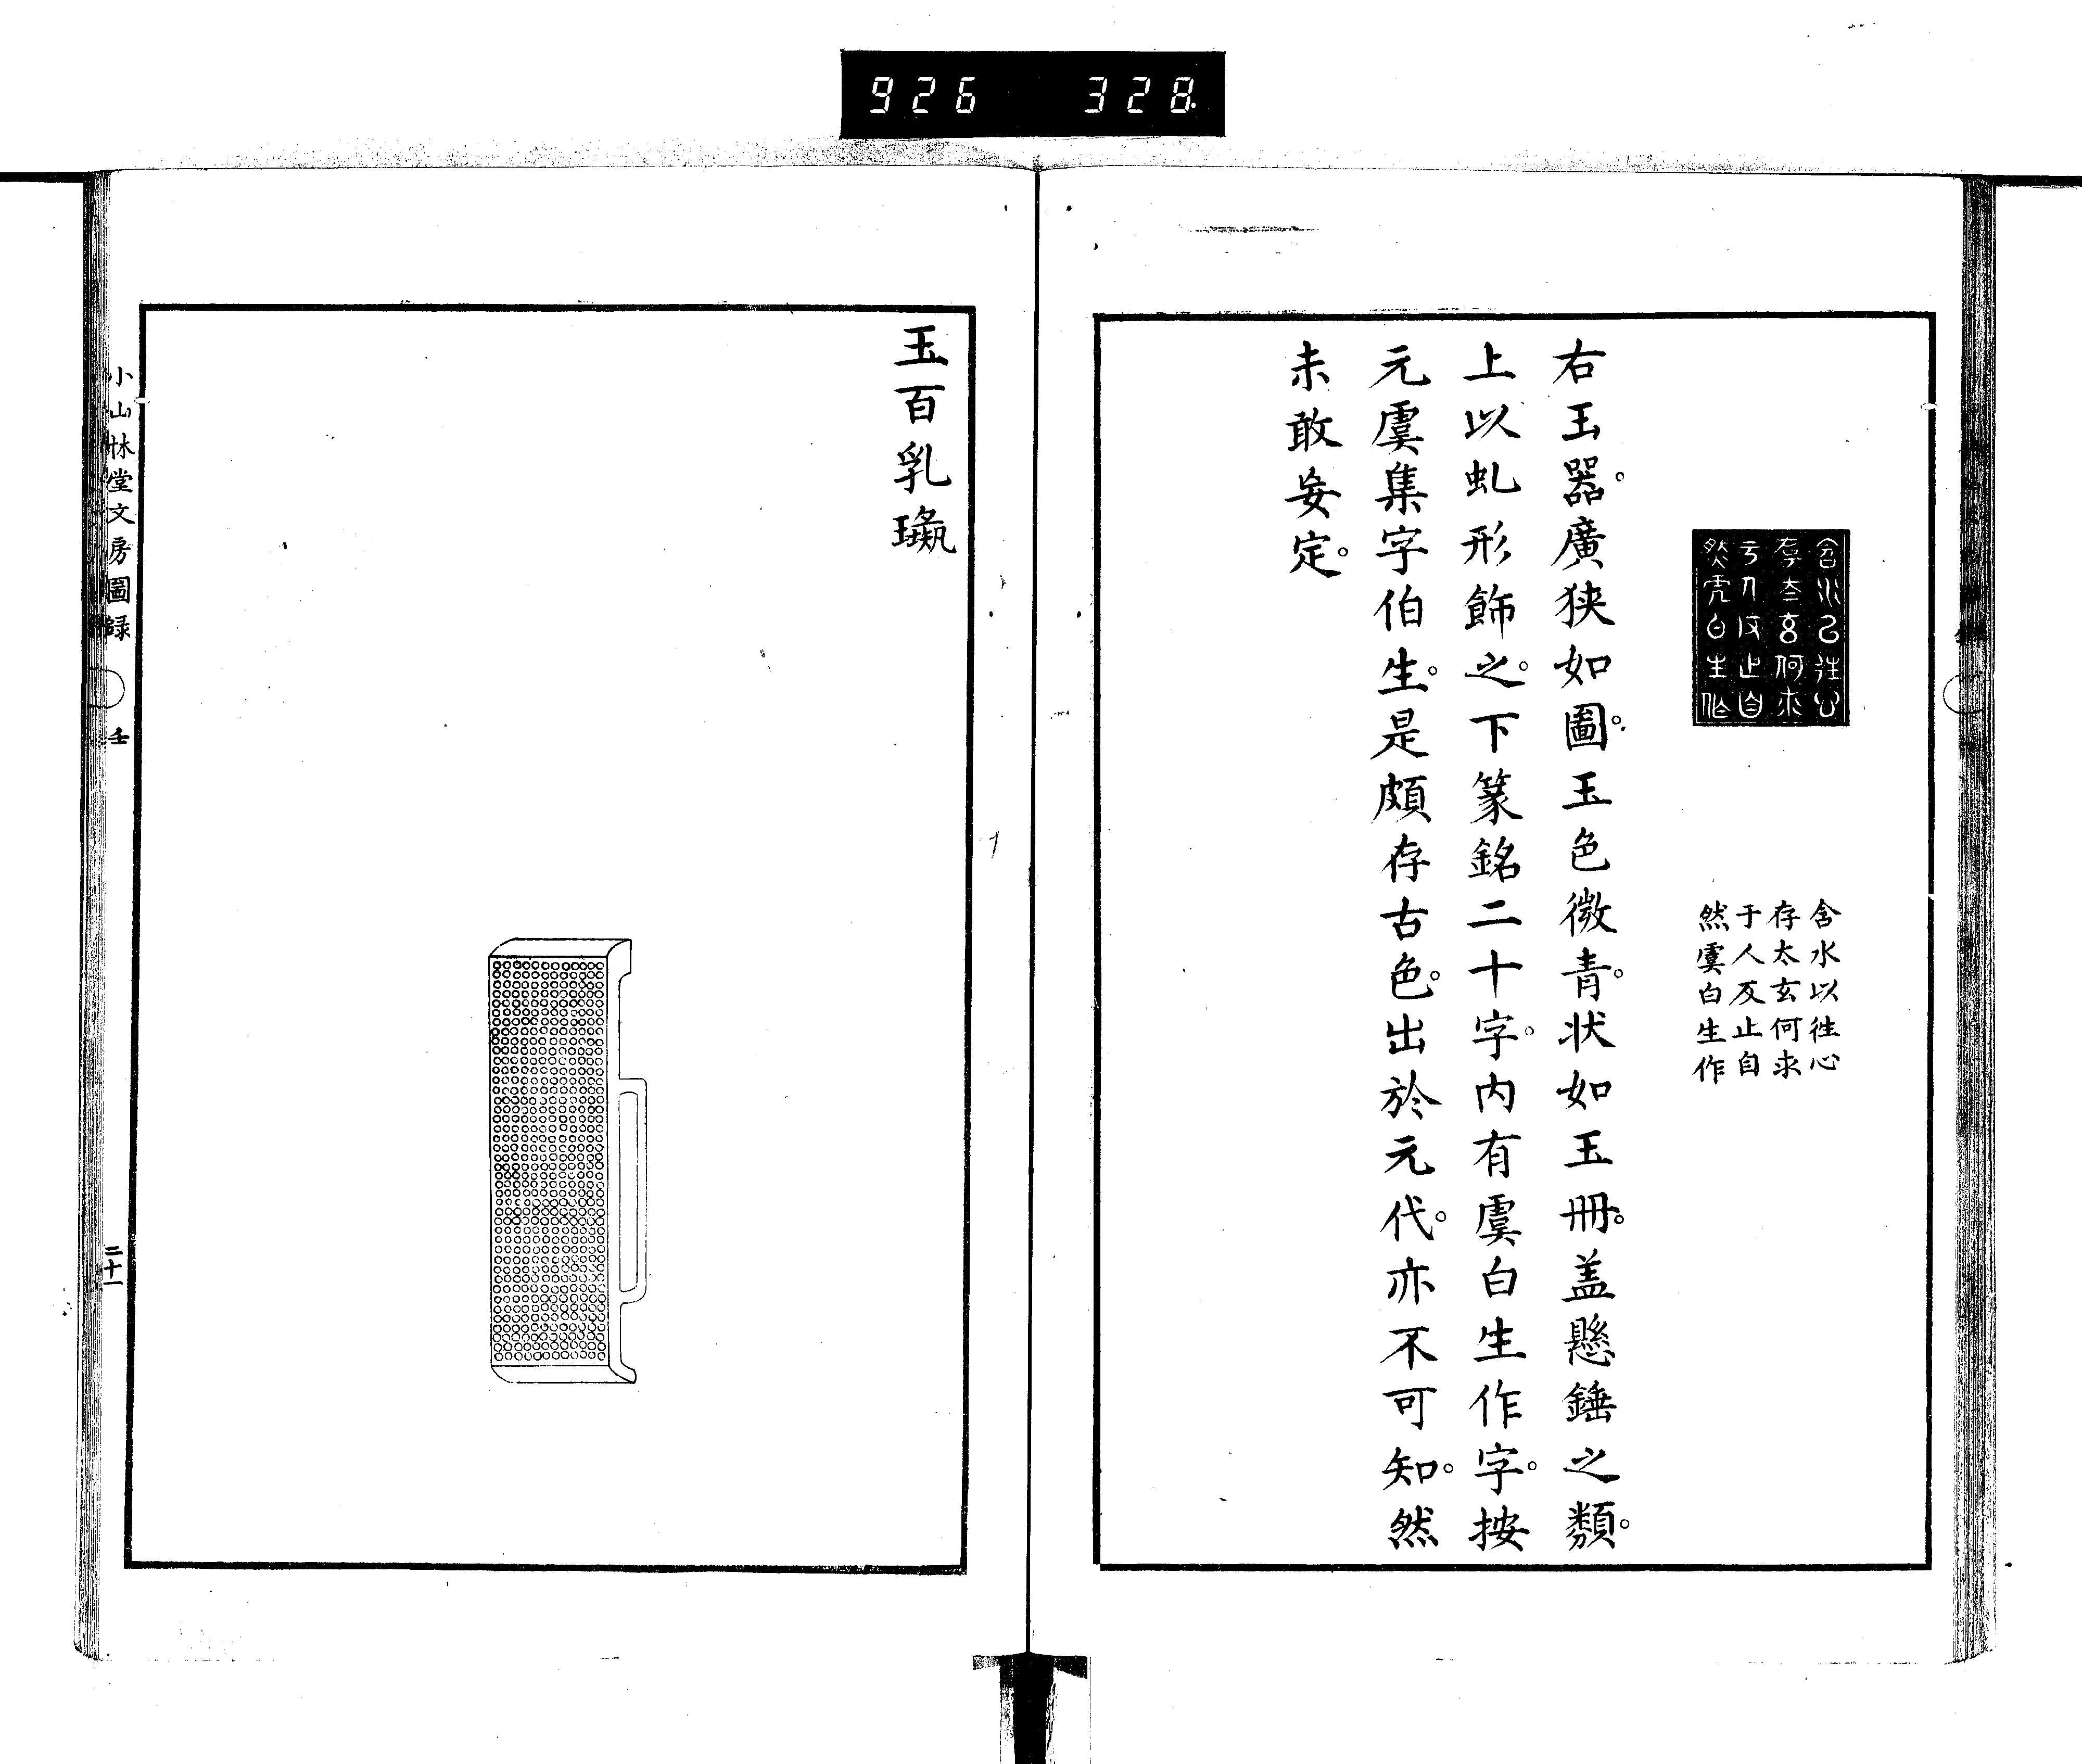 926 328
含水以徃心
存太玄何求
于人反止自
然虞白生作
右玉器。廣狭如圖。玉色微青。状如玉冊。盖懸錘之類。
上以虬形飾之。下篆銘二十字。内有虞白生作字。按
元虞集字伯生。是頗存古色。出於元代。亦不可知。然
未敢妄定。
玉百乳
小山林堂文房圖録
壬
二十一